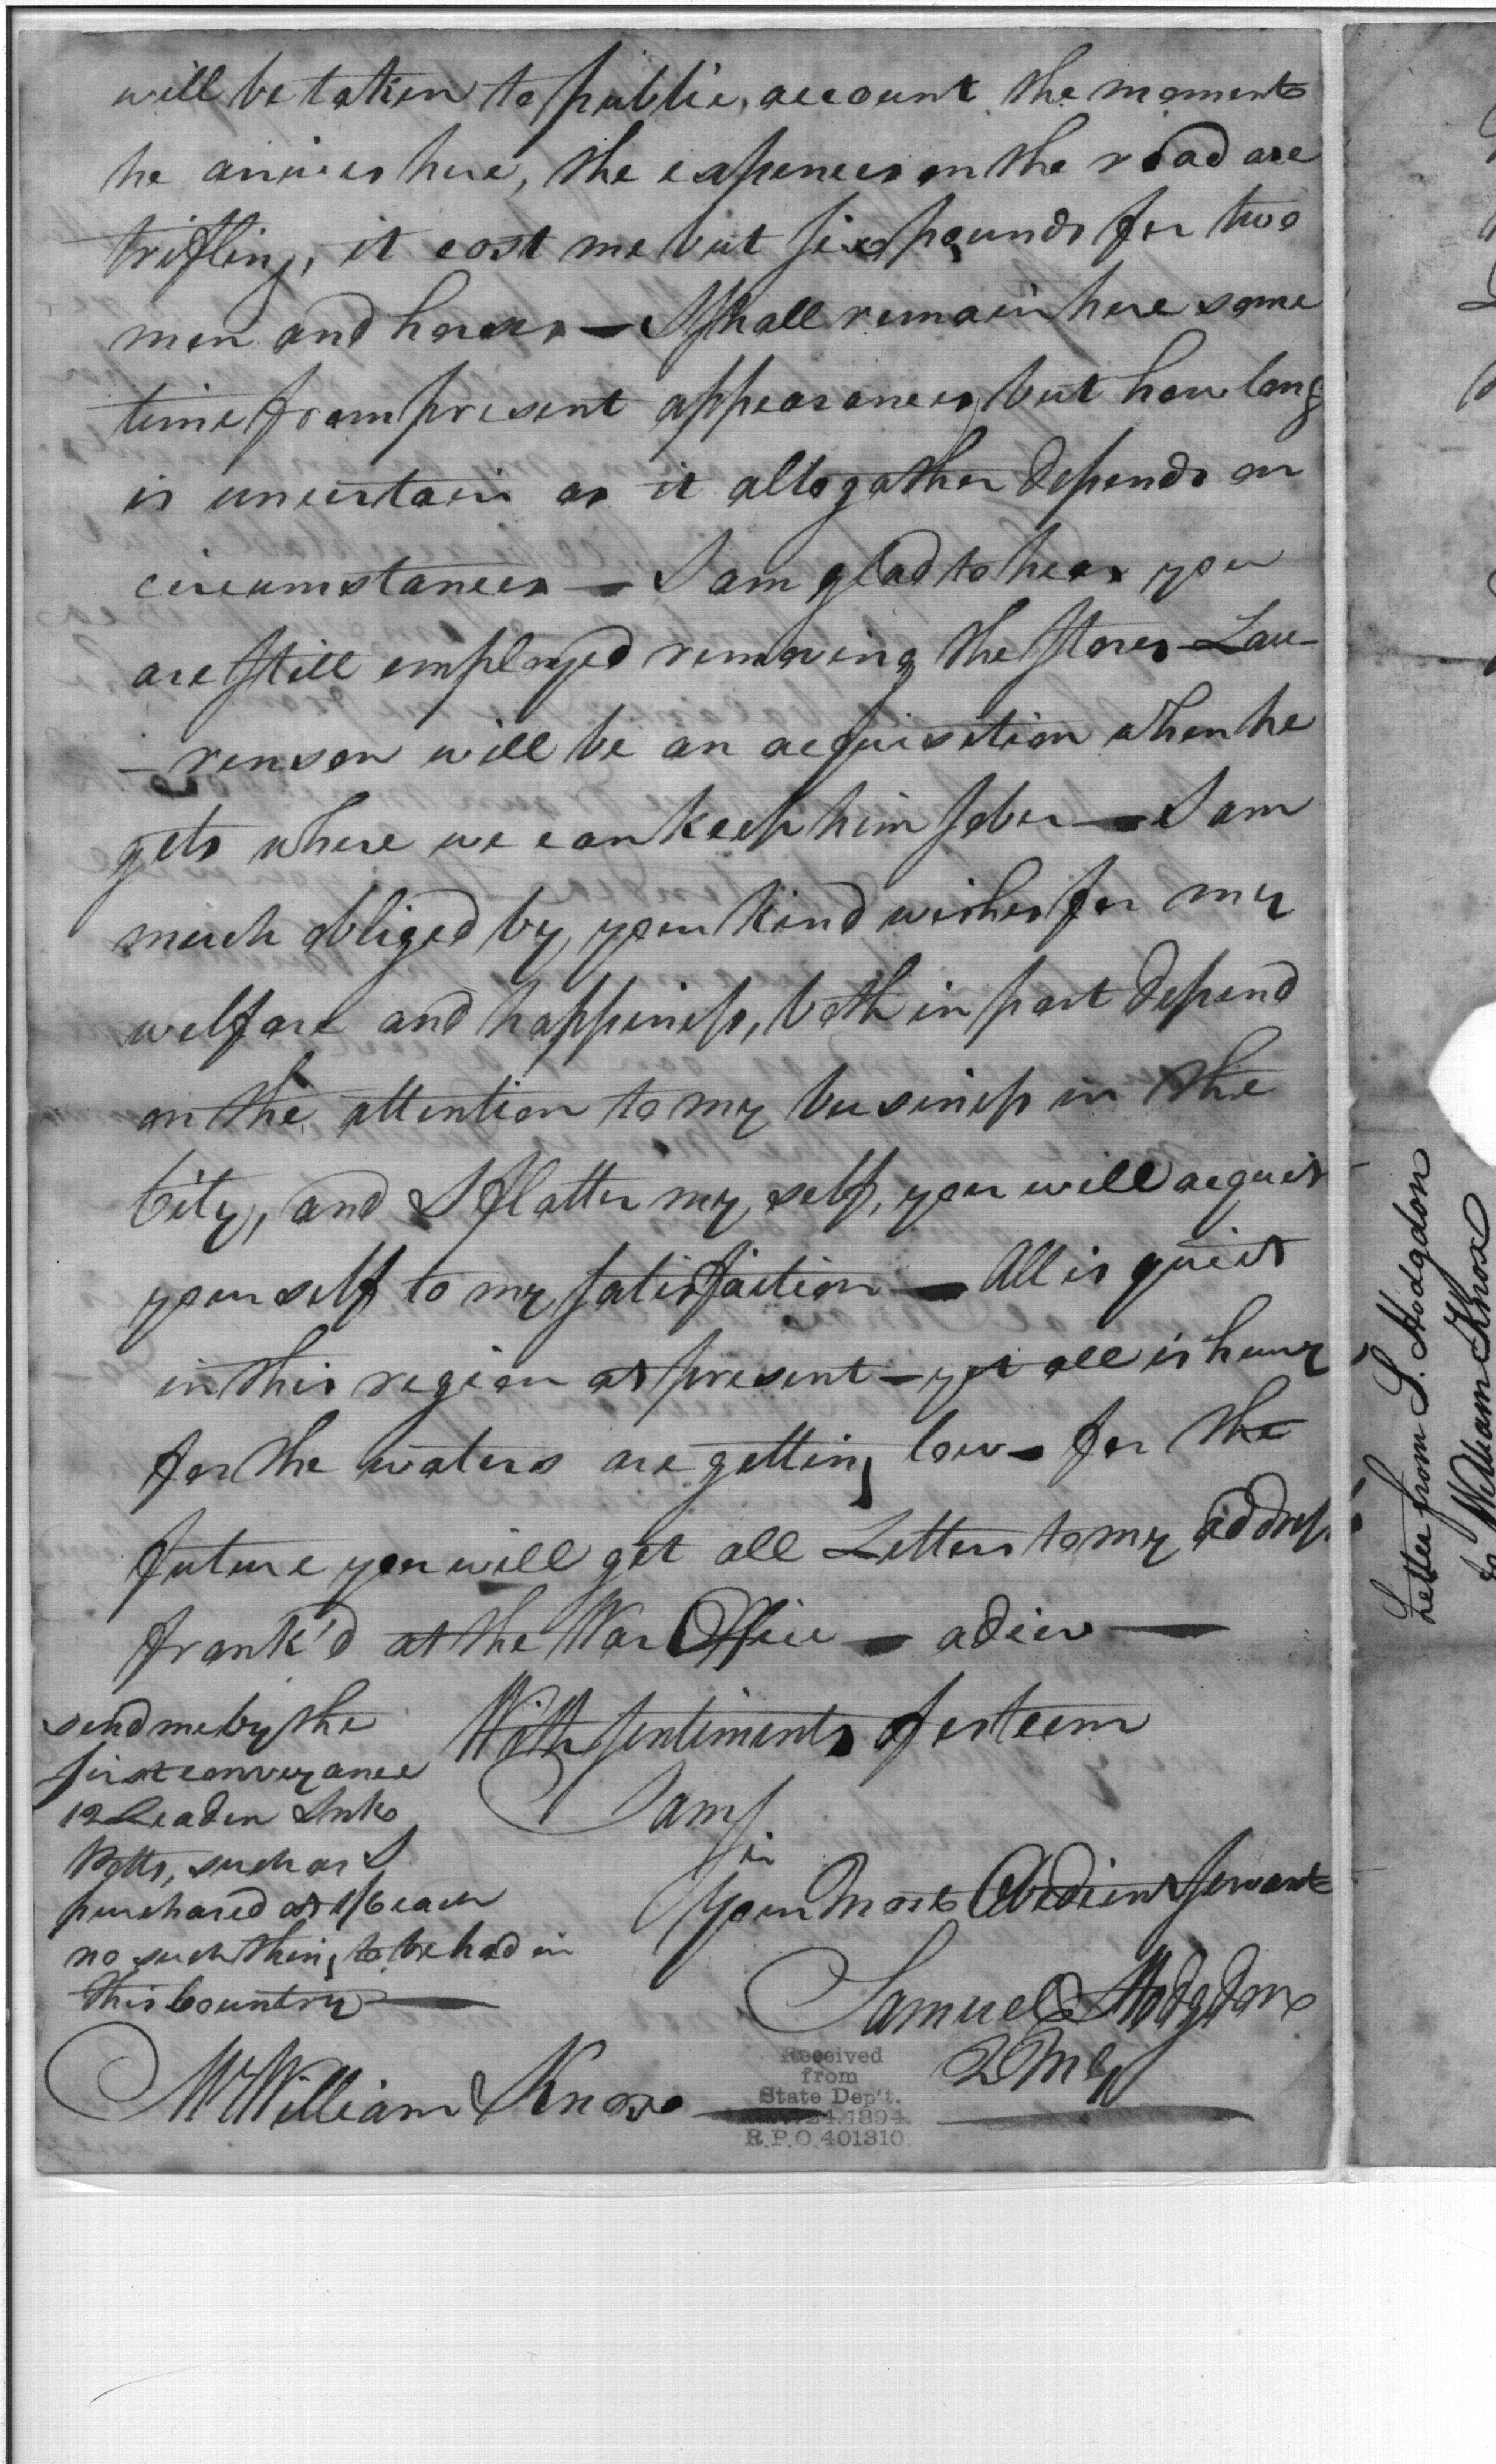 will be taken to public, account the moment
he arrives here, the expences on the road are
trifling, it cost me but six pounds for two
men and horses — I shall remain here some
time from present appearances, but how long
is uncertain as it altogather depends on
circumstances — I am glad to hear you
are still employed removing the stores — Lau-
-renson will be an acquisition when he
gets where we can keep him sober — I am
much obliged by your kind wishes for my
welfare and happiness, both in part depend
on the attention to my business in the
City, and I flatter my self, you will acquit
yourself to my satisfaction — All is quiet
in this region at present — yet all is hurry
for the waters are getting low — for the
future you will get all Letters to my address
frank'd at the War Office — adieu —
With sentiments of esteem
I am
Sir
Your most Obedient Servant
Samuel Hodgdon
QMG
send me by the
first conveyance
12 Leaden Ink
Potts, such as I
purchased at 1/6 each
no such thing to be had in
this Country —
Mr William Knox
Received
from
State Dep't.
24.1894.
R.P.O.401310.
Letter from S. Hodgdon
to William Knox